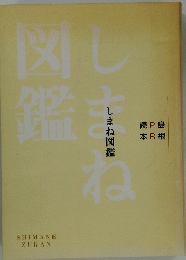 しまね
図鑑
しまね図鑑
島根
PR
読本
SHIMANE
ZUKAN